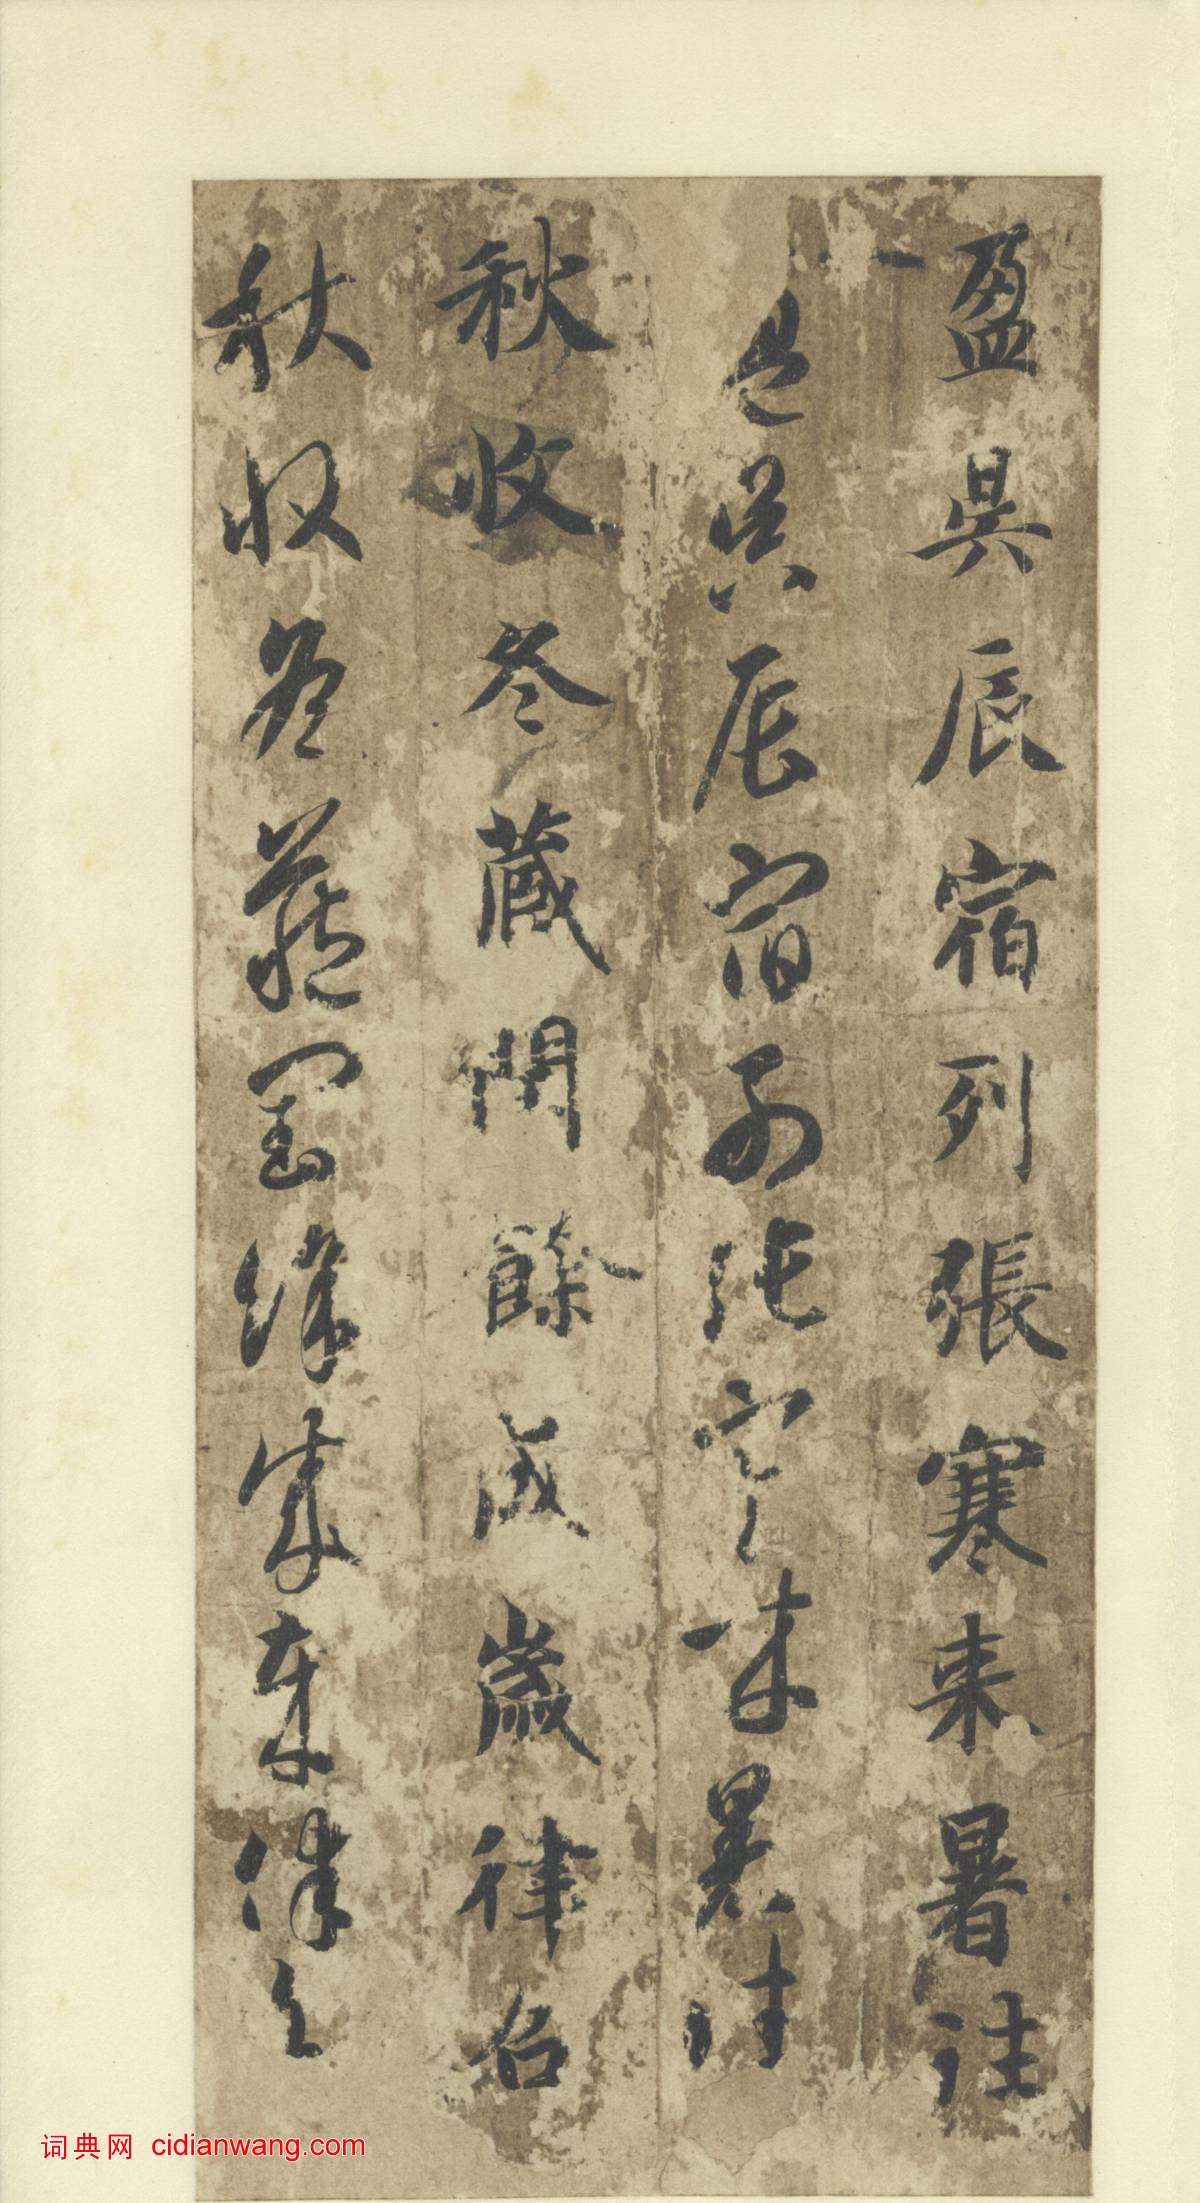 盈昃辰宿列張寒来暑往
盈昃辰宿列張寒来暑往
秋收冬蔵閏餘成歲律召
秋收冬蔵閏餘成歲律召
词典网 cidianwang.com